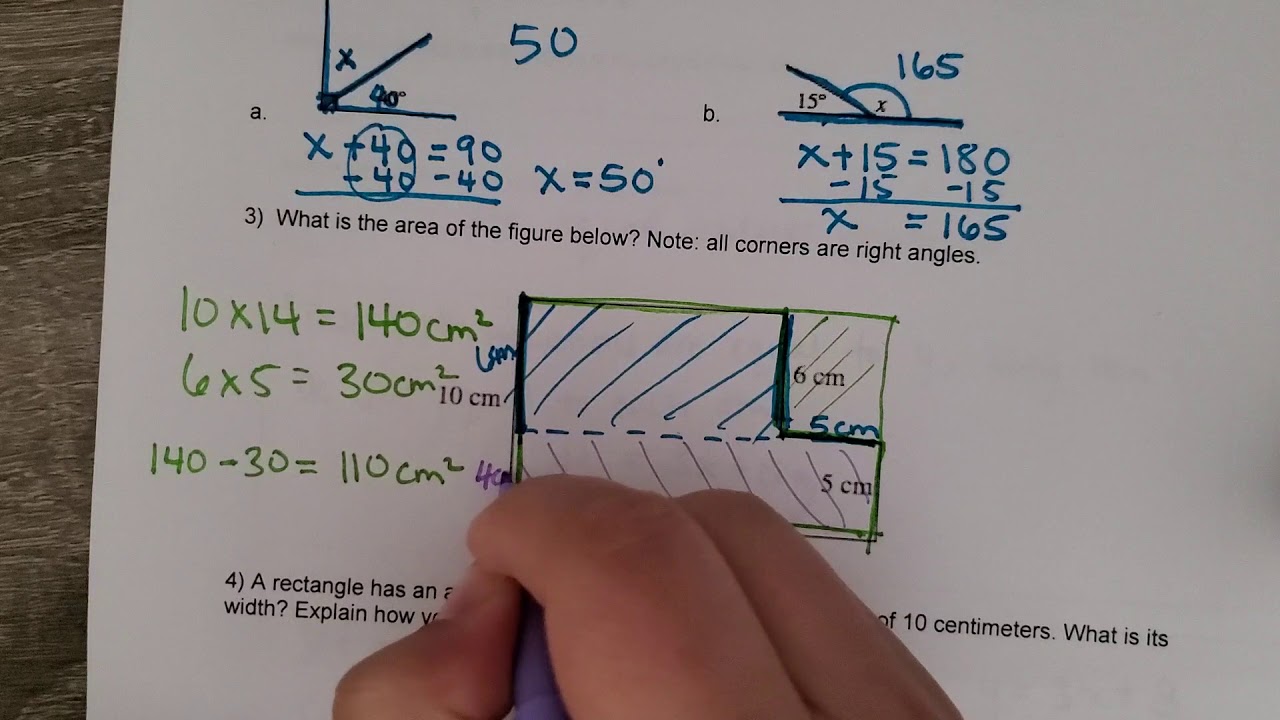 x
50
40°
a.
x + 40 = 90
- 40 - 40
x = 50°
165
15°
x
b.
x + 15 = 180
- 15 - 15
x = 165
3) What is the area of the figure below? Note: all corners are right angles.
10 x 14 = 140 cm²
6 x 5 = 30 cm²
140 - 30 = 110 cm²
6cm
10 cm
6 cm
5cm
5 cm
4) A rectangle has an
of 10 centimeters. What is its
width? Explain how